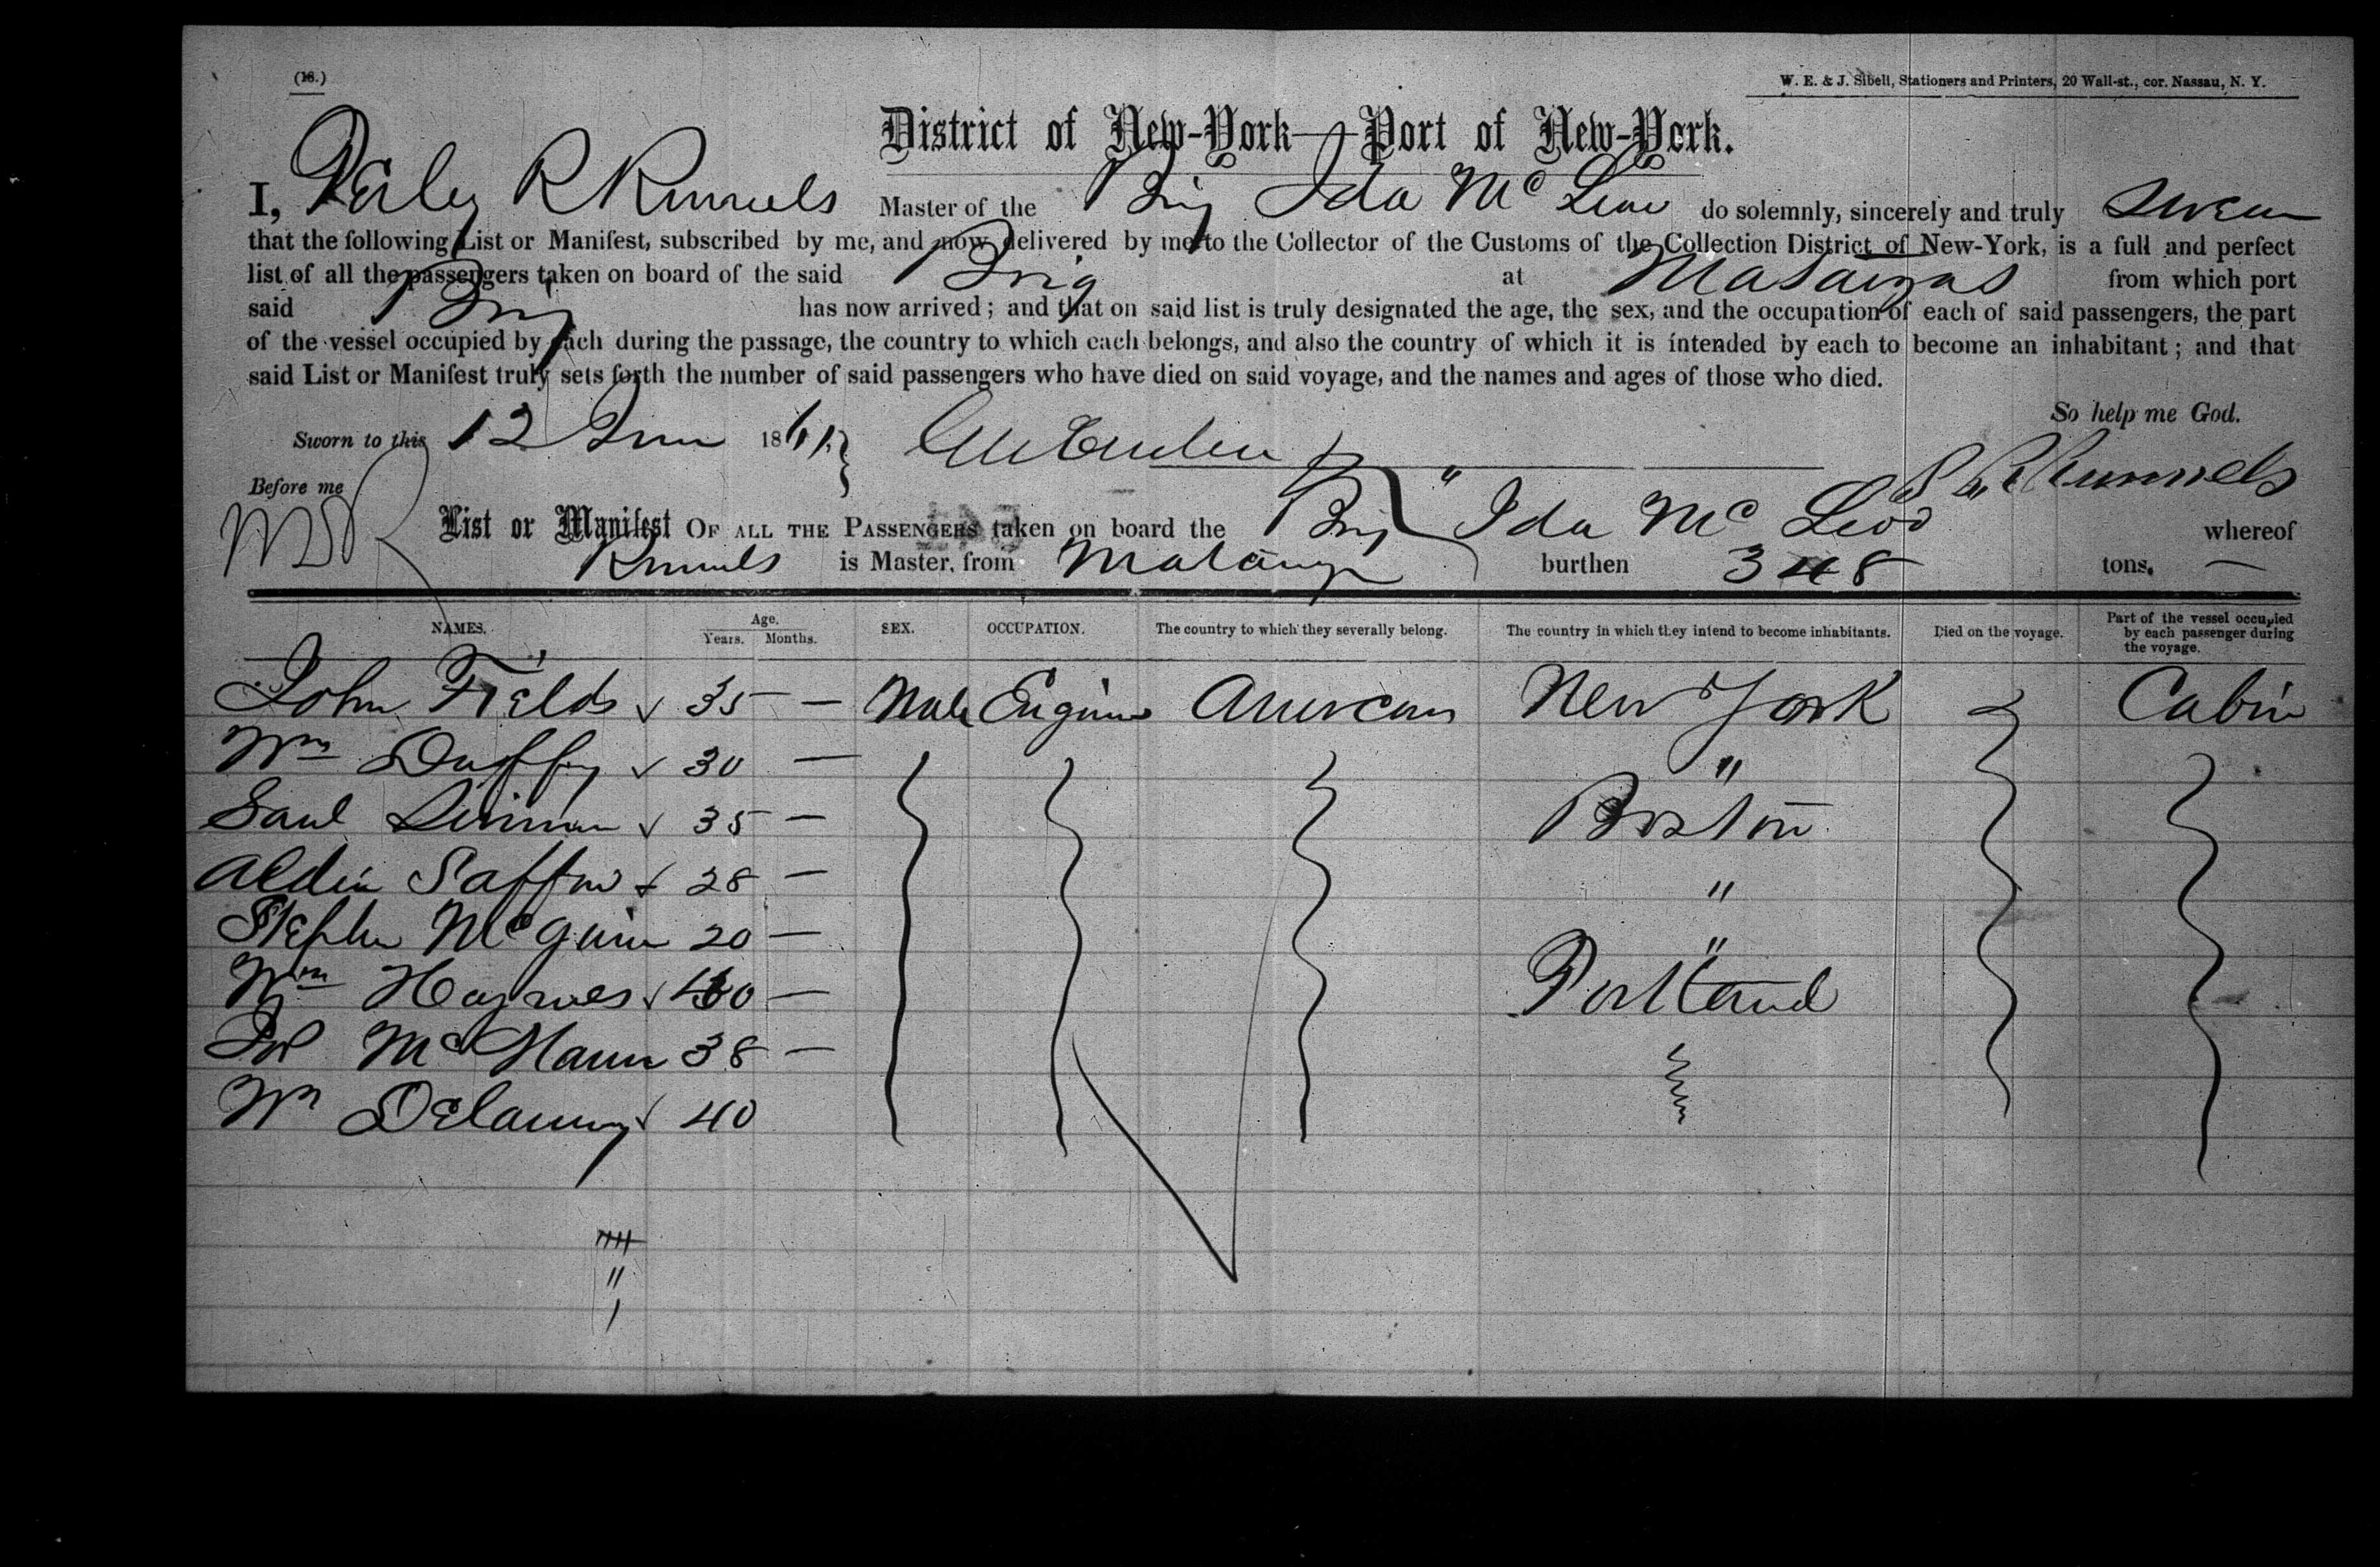 (18.)
W. E. & J. Sibell, Stationers and Printers, 20 Wall-st., cor. Nassau, N. Y.
District of New-York—Port of New-York.
I, Perley R Runnels Master of the Brig Ida Mc Leod do solemnly, sincerely and truly swear
that the following List or Manifest, subscribed by me, and now delivered by me to the Collector of the Customs of the Collection District of New-York, is a full and perfect
list of all the passengers taken on board of the said Brig at Matanzas from which port
said Brig has now arrived; and that on said list is truly designated the age, the sex, and the occupation of each of said passengers, the part
of the vessel occupied by each during the passage, the country to which each belongs, and also the country of which it is intended by each to become an inhabitant; and that
said List or Manifest truly sets forth the number of said passengers who have died on said voyage, and the names and ages of those who died.
So help me God.
Sworn to this 12 June 186
Before me
P R Runnels
List or Manifest OF ALL THE PASSENGERS taken on board the Brig "Ida Mc Leod" whereof
Runnels is Master, from Matanzas burthen 348 tons. —
NAMES. Age. Years. Months. SEX. OCCUPATION. The country to which they severally belong. The country in which they intend to become inhabitants. Died on the voyage. Part of the vessel occupied by each passenger during the voyage.
John Fields 35 — Male Engineer American New York Cabin
Wm Duffy 30 — "
Saul 35 — Boston
Aldin 28 — "
Stephen McGuire 20 — "
Wm Haynes — Portland
Mc 38 —
Wm Delanny 40